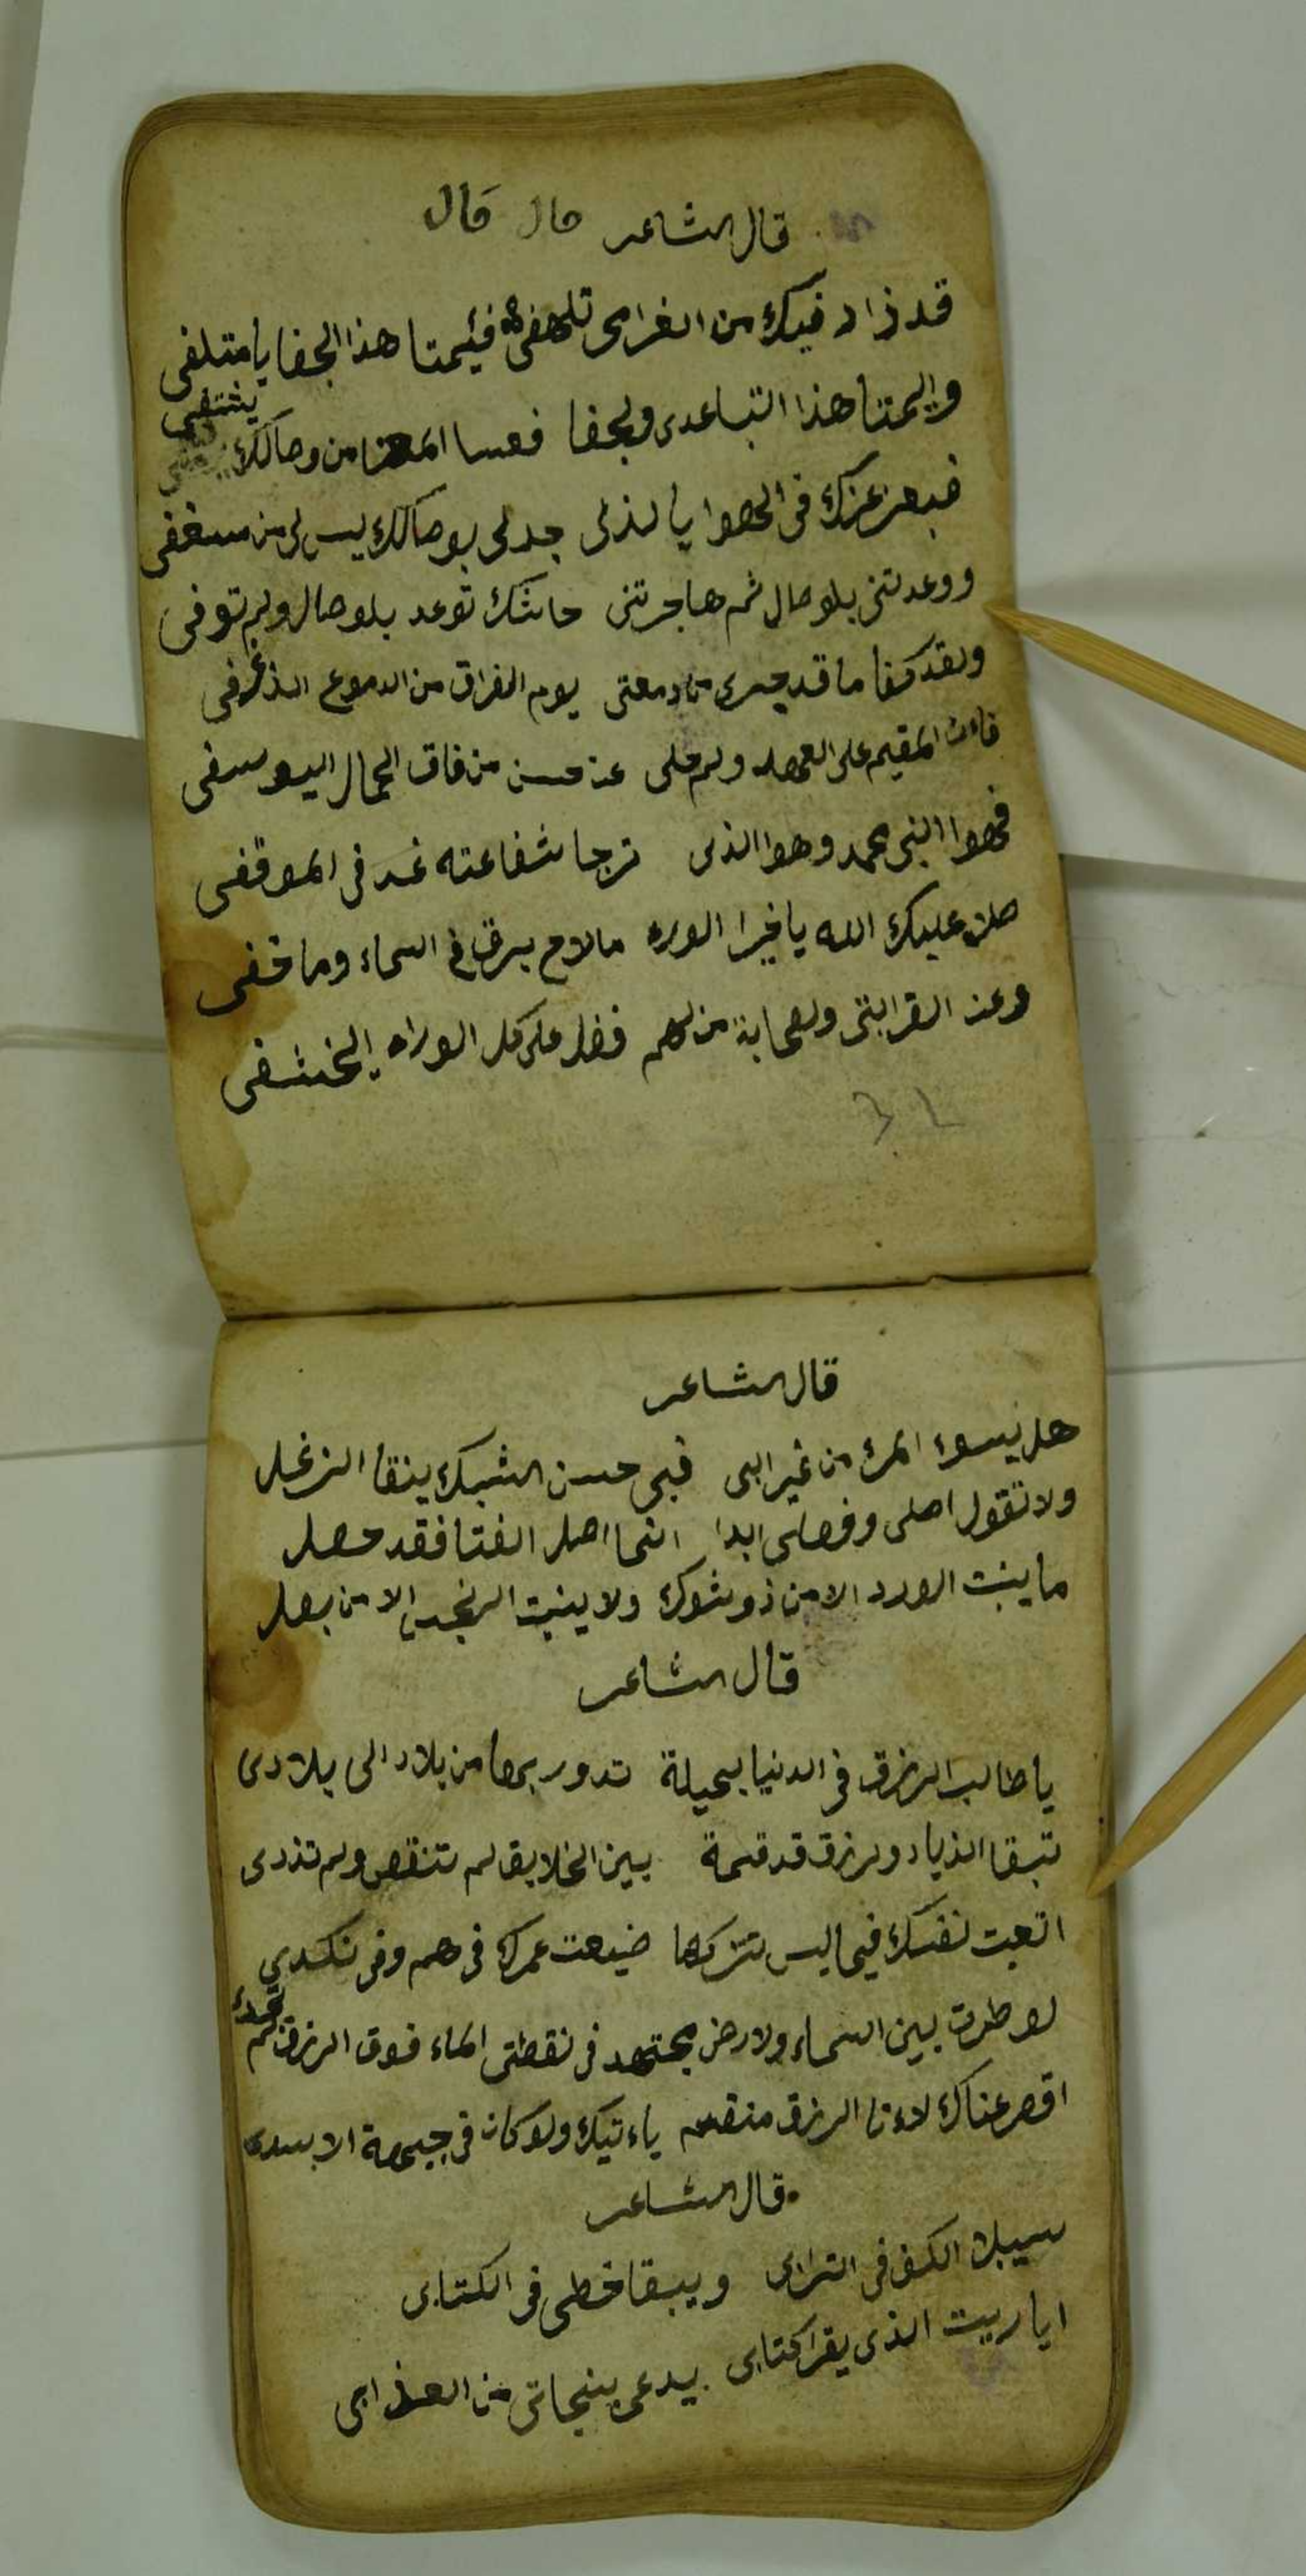 قال الشاعر قال قال
قد زاد فيك من الغرامى تلهفى فئيمتا هذا الجفا يا متلفى
واليمتا هذا التباعدى ولجفا فعسا المعنا من وصالك يشتفى
فبعز عزك فى الهوا يا لذلى جد لى بوصالك ليس لى من مسعفى
ووعدتنى بلوصال ثم هاجرتنى حاشك توعد بلوصال ولم توفى
ولقد كفا ما قد جرى من دمعتى يوم الفراق من الدموع الذرفى
فاءن المقيم على العهد ولم حلى عن حسن من فاق الجمال اليوسفى
فهوا النبى محمد وهوا الذى نرجا شفاعته غد فى الموقفى
صلى عليك الله يا خيرا الوره مالاح برق فى السماء وما خفى
وعن القرابتى ولصحابة من لهم فضل على كل الوراه
قال الشاعر
هل يسوء المرء من غير ابى فبى حسن الشبك ينقا الزغل
ولا تقول اصلى وفصلى ابدا انما اصل الفتا فقد حصل
ما ينبت الورد الا من ذو شوك ولا ينبت النرجس الا من بصل
قال الشاعر
يا طالب الرزق فى الدنيا بحيلة تدور بها من بلاد الى بلادى
تبقا الذياد ولرزق قد قسمة بين الخلايق لم تنقص ولم تذدى
اتعبت نفسك فيما ليس تتركها ضيعت عمرك فى هم وفى نكدى
لو طرت بين السماء ولارض مجتهد فى نقطتى الماء فوق الرزق لم تجدئ
اقصر عناك لاءنا الرزق منقسم ياءتيك ولو كان فى جبهة الاسدى
قال الشاعر
سيبلا الكف فى الترابى ويبقا خطى فى الكتابى
ايا ريت الذى يقرا كتابى يدعى بنجاتى من العذابى